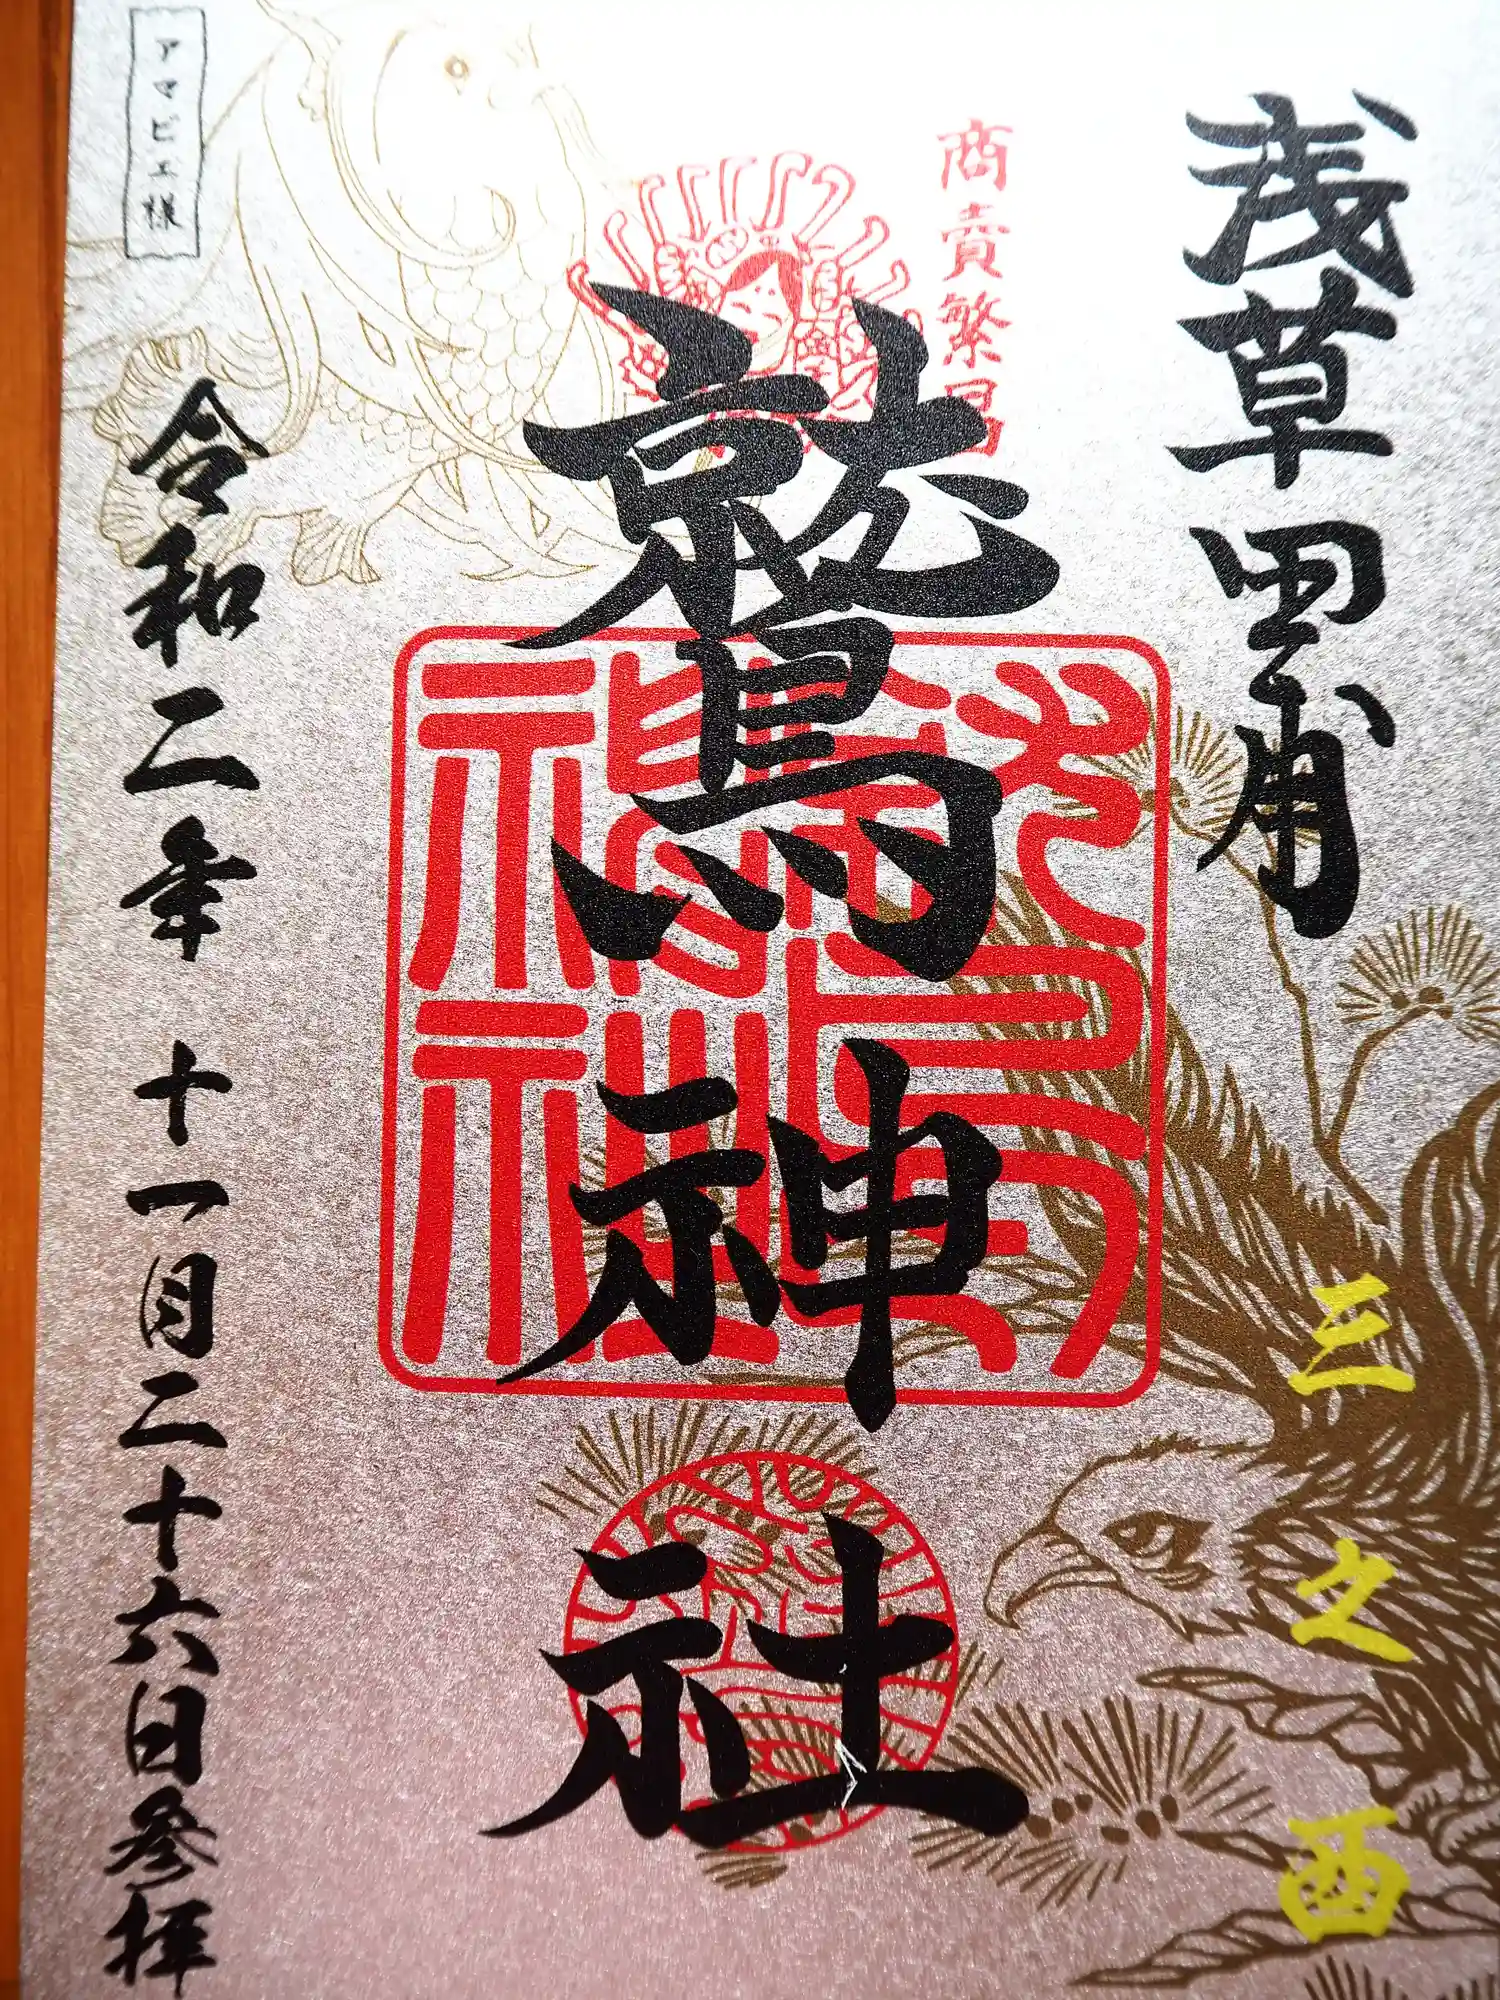 浅草田甫
商賣繁昌
鷲神社
三之酉
令和二年 十一月二十六日参拝
アマビエ様